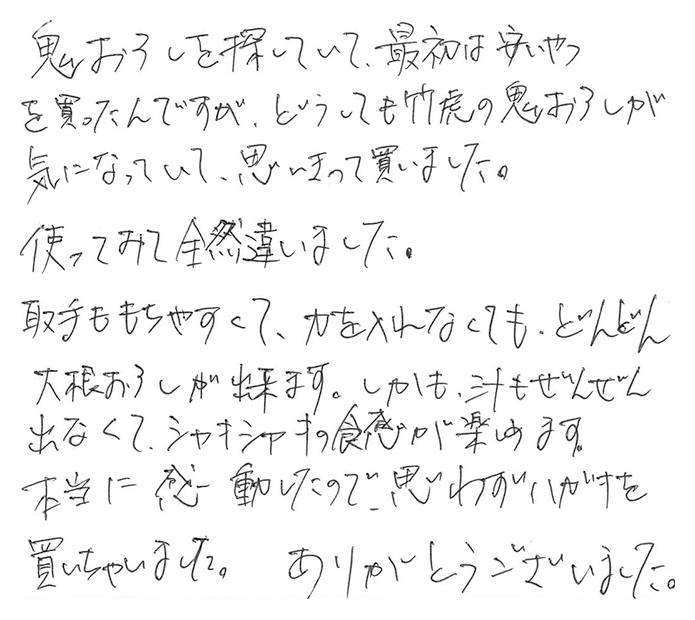 鬼おろしを探していて、最初は安いやつ
を買ったんですが、どうしても竹虎の鬼おろしが
気になっていて、思いきって買いました。
使ってみて全然違いました。
取手ももちやすくて、力を入れなくても、どんどん
大根おろしが出来ます。しかも、汁もぜんぜん
出なくて、シャキシャキの食感が楽めます。
本当に感動したので、思わずハガキを
買いちゃいました。 ありがとうございました。